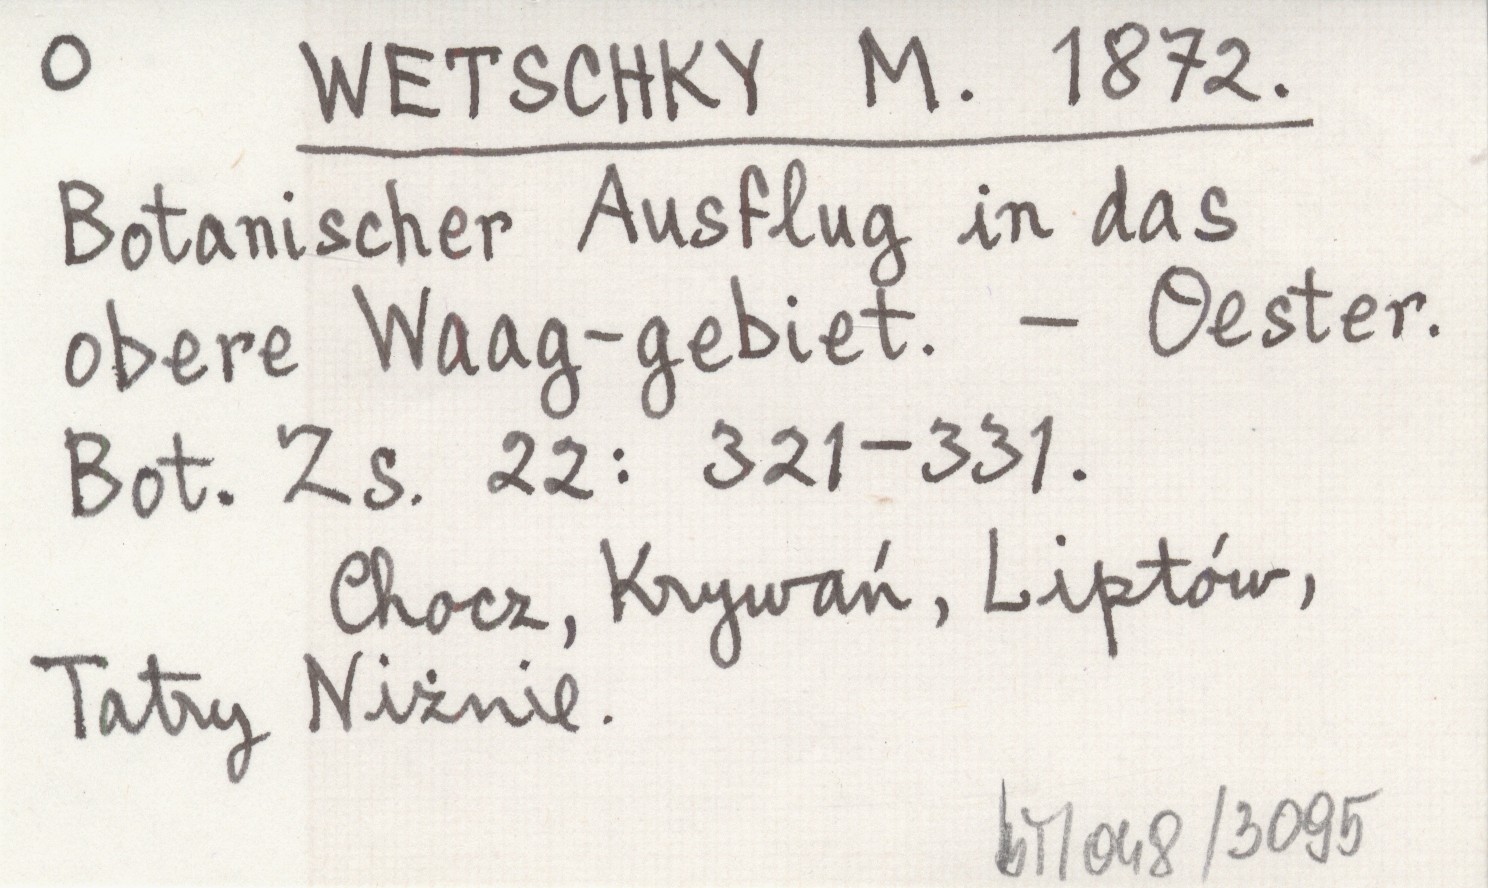 O WETSCHKY M. 1872.
Botanischer Ausflug in das
obere Waag-gebiet. – Oester.
Bot. Zs. 22: 321–331.
Chocz, Krywań, Liptów,
Tatry Niżnie.
/048/3095